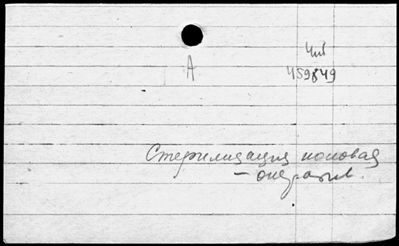 Чит
А 459849
Стерилизация половая
– оператив.